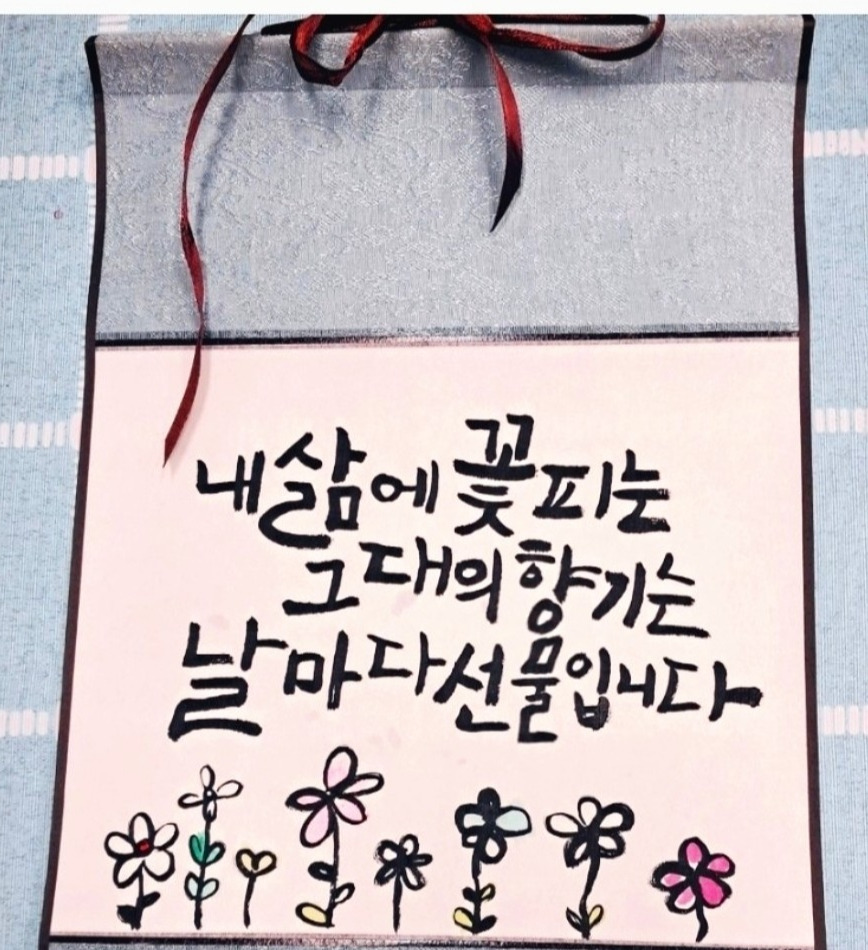 내 삶에 꽃피는
그대의 향기는
날마다 선물입니다